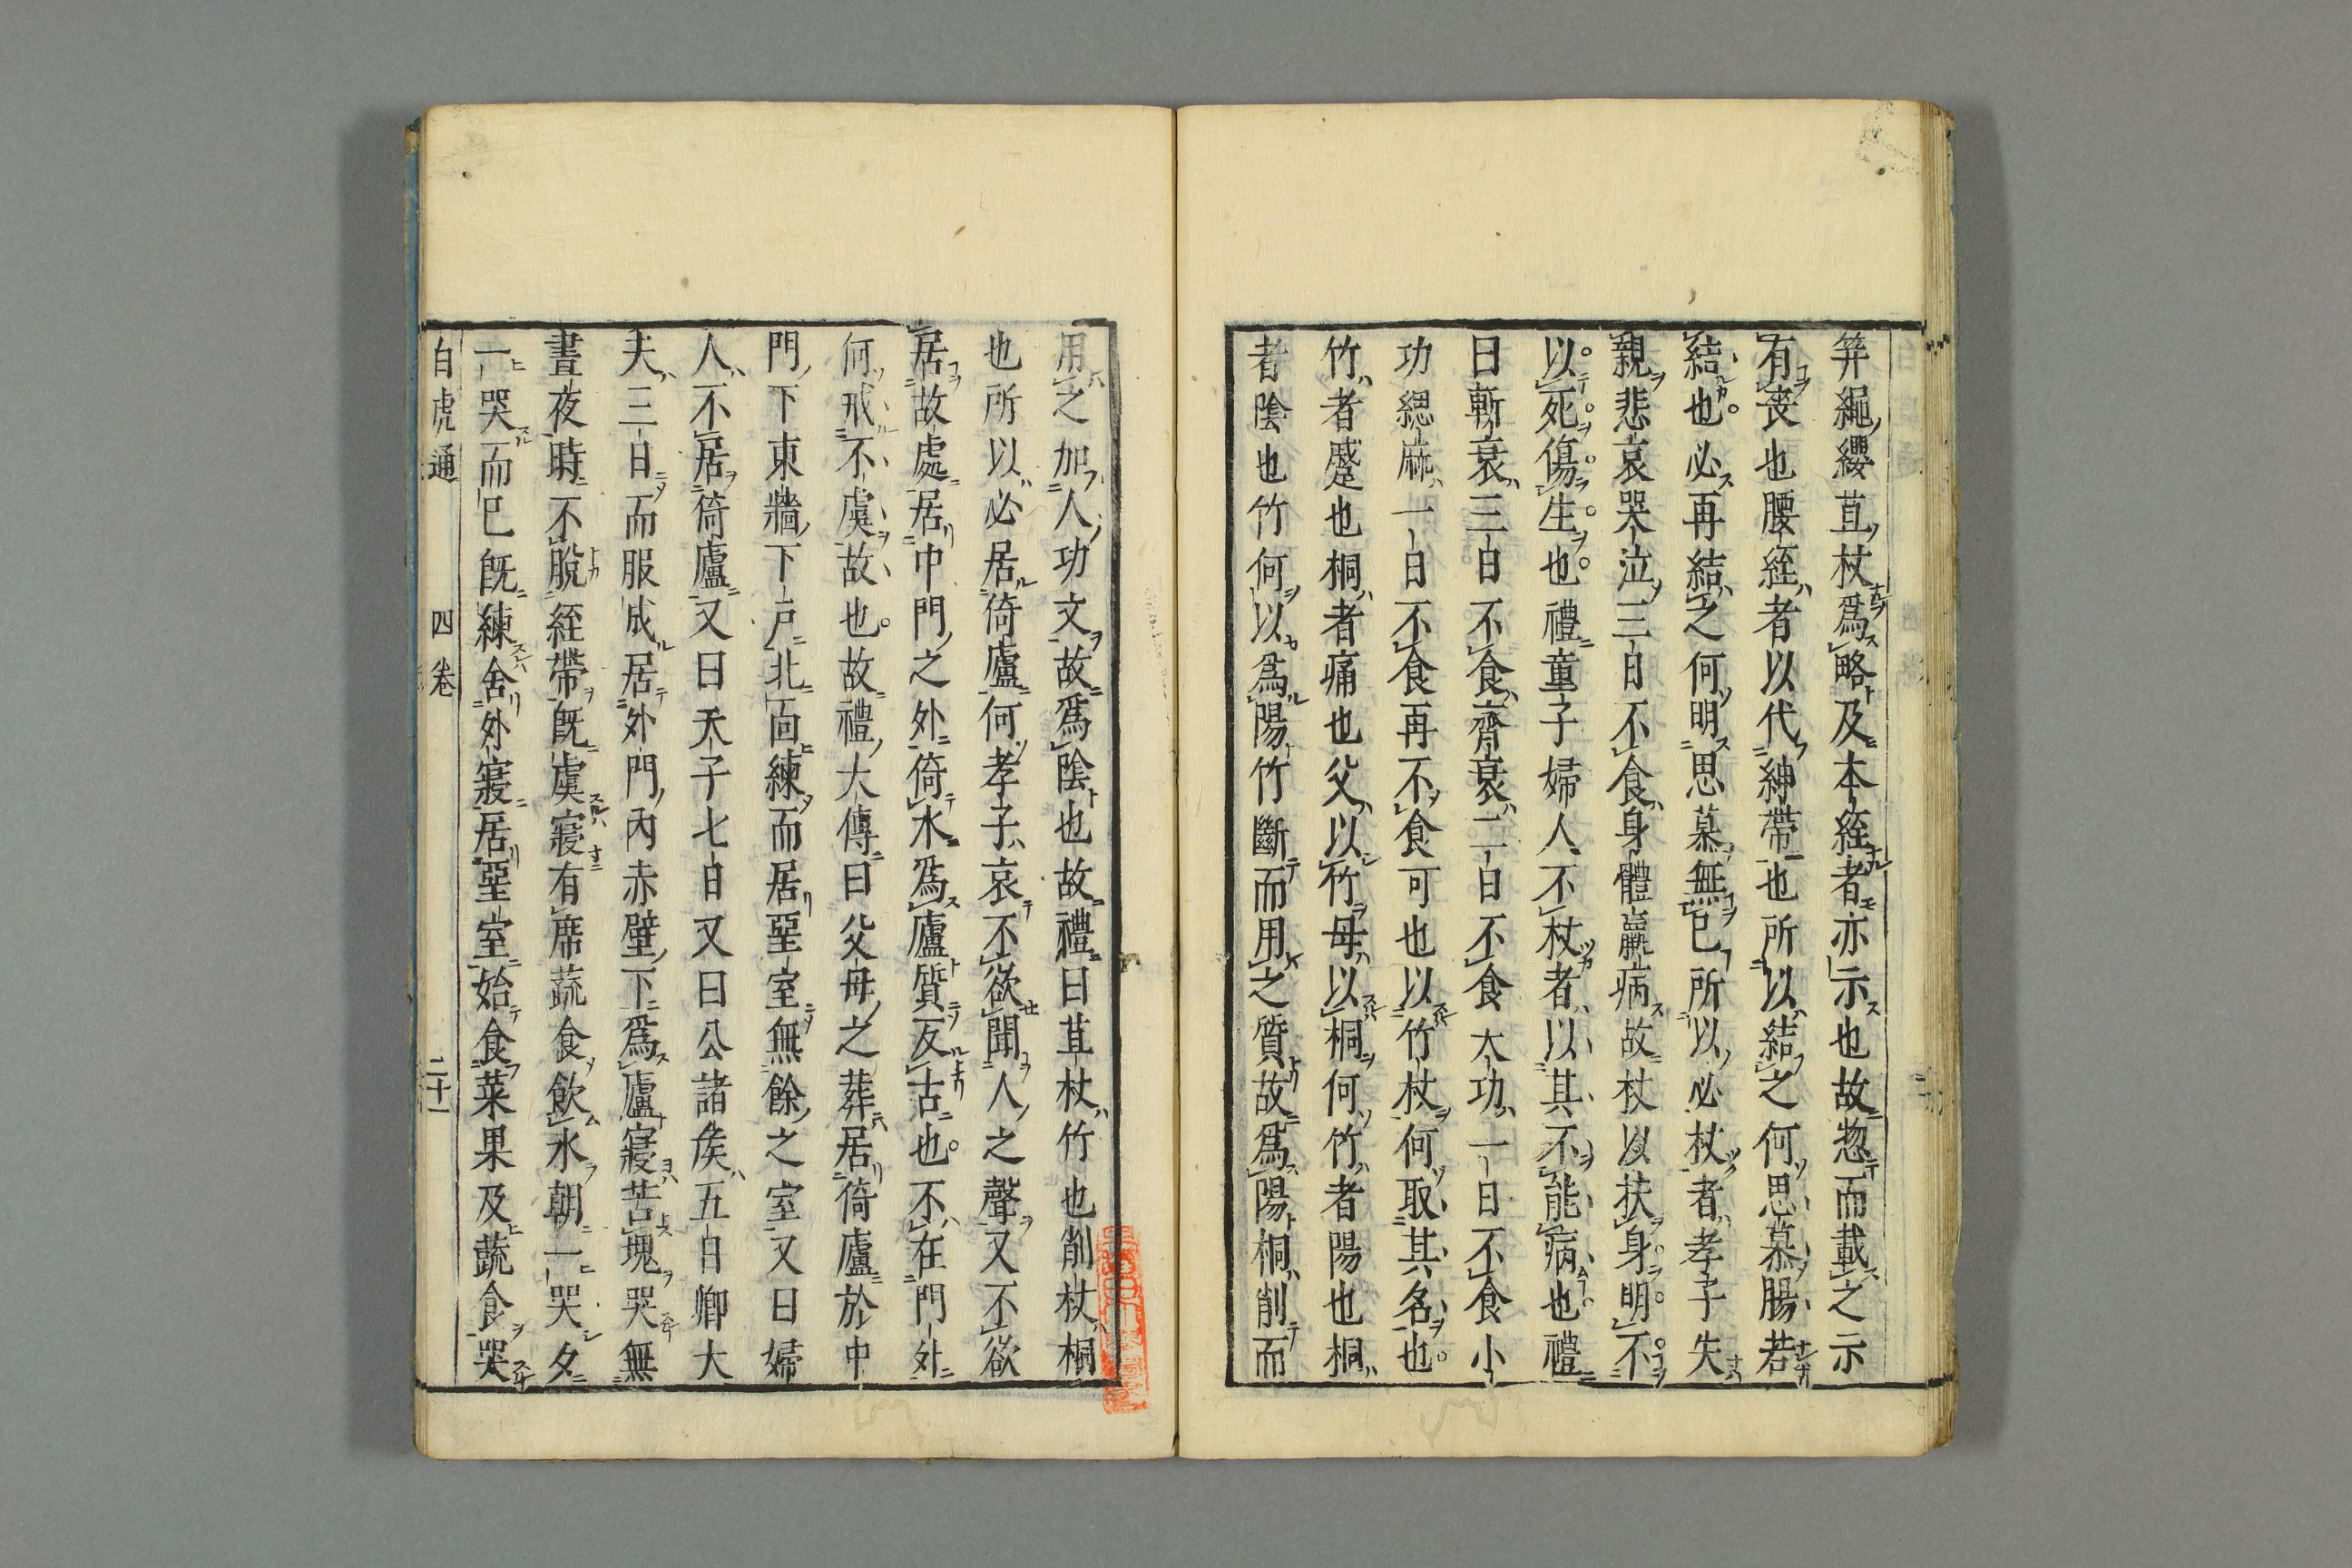 笄繩纓苴杖爲略及本絰者亦示也故惣而載之示
有喪也腰絰者以代紳帶也所以結之何思慕腸若
結也必再結之何明思慕無已所以必杖者孝子失
親悲哀哭泣三日不食身體羸病故杖以扶身明不
以死傷生也禮童子婦人不杖者以其不能病也禮
曰斬衰三日不食齊衰二日不食大功一日不食小
功緦麻一日不食再不食可也以竹杖何取其名也
竹者蹙也桐者痛也父以竹母以桐何竹者陽也桐
者陰也竹何以爲陽竹斷而用之質故爲陽桐削而
用之加人功文故爲陰也故禮曰苴杖竹也削杖桐
也所以必居倚廬何孝子哀不欲聞人之聲又不欲
居故處居中門之外倚水爲廬質反古也不在門外
何戒不虞故也故禮大傳曰父母之葬居倚廬於中
門下東牆下戶北面練而居堊室無餘之室又曰婦
人不居倚廬又曰天子七日又曰公諸矦五日卿大
夫三日而服成居外門內赤壁下爲廬寢苫塊哭無
晝夜時不脫絰帶旣虞寢有席蔬食飲水朝一哭夕
一哭而已旣練舍外寢居堊室始食菜果及蔬食哭
白虎通 四卷 二十一